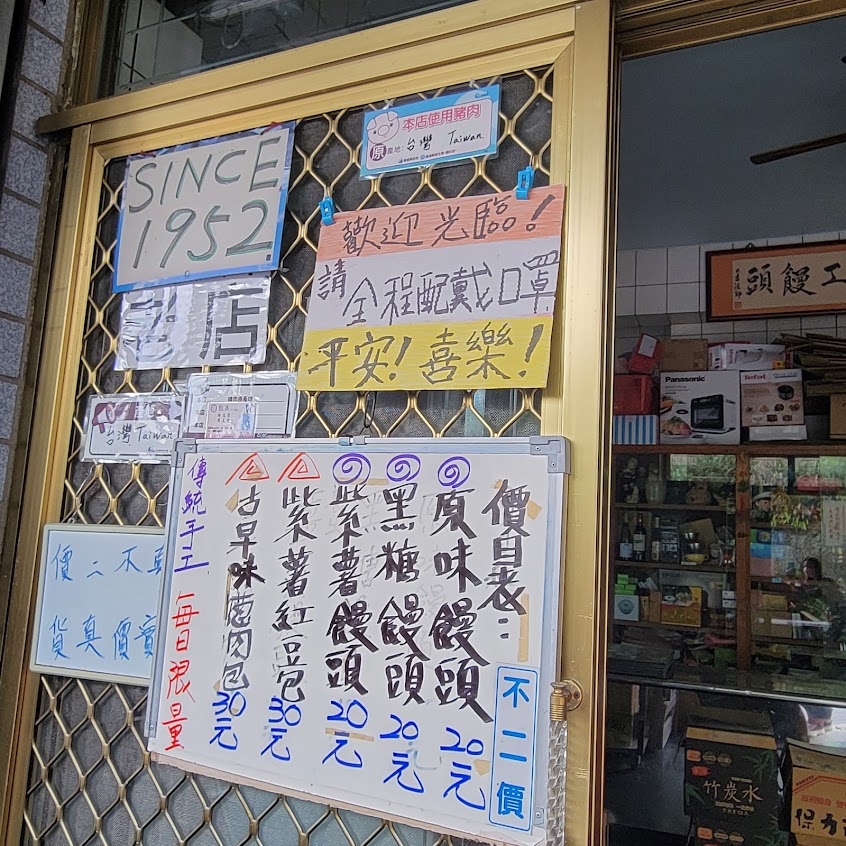 SINCE
1952.
本店使用豬肉
原產地: 台灣 Taiwan
歡迎光臨!
請全程配戴口罩
平安! 喜樂!
店
台灣Taiwan
價目表:
原味饅頭 20元
黑糖饅頭 20元
紫薯饅頭 20元
紫薯紅豆包 30元
古早味蔥肉包 30元
傳統手工 每日限量
不二價
價二不
貨真價實
工饅頭
Panasonic
Tefal
竹炭水
保力